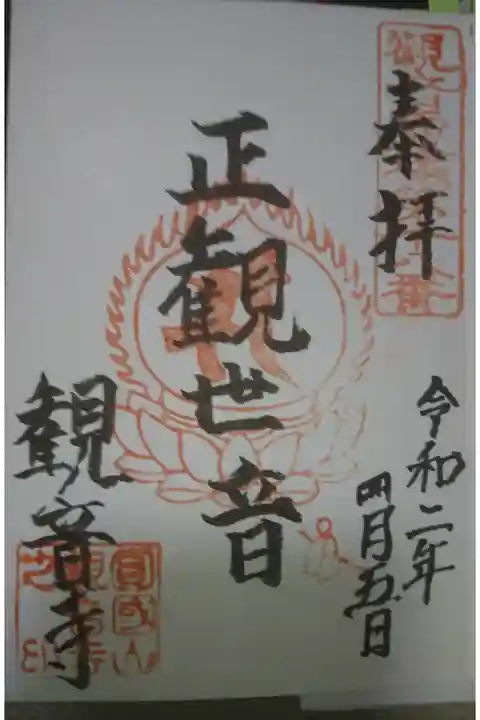 奉拝
令和二年
四月五日
正観世音
観音寺